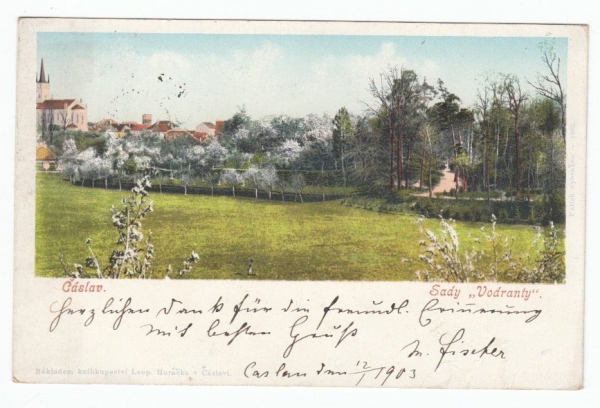 Cáslav.
Sady „Vodranty“.
Herzlichen Dank für die freundl. Erinnerung
mit besten Gruß
M. Fischer
Caslau den 12/1 1903
Nákladem knihkupectví Leop. Horáčka v Čáslavi.